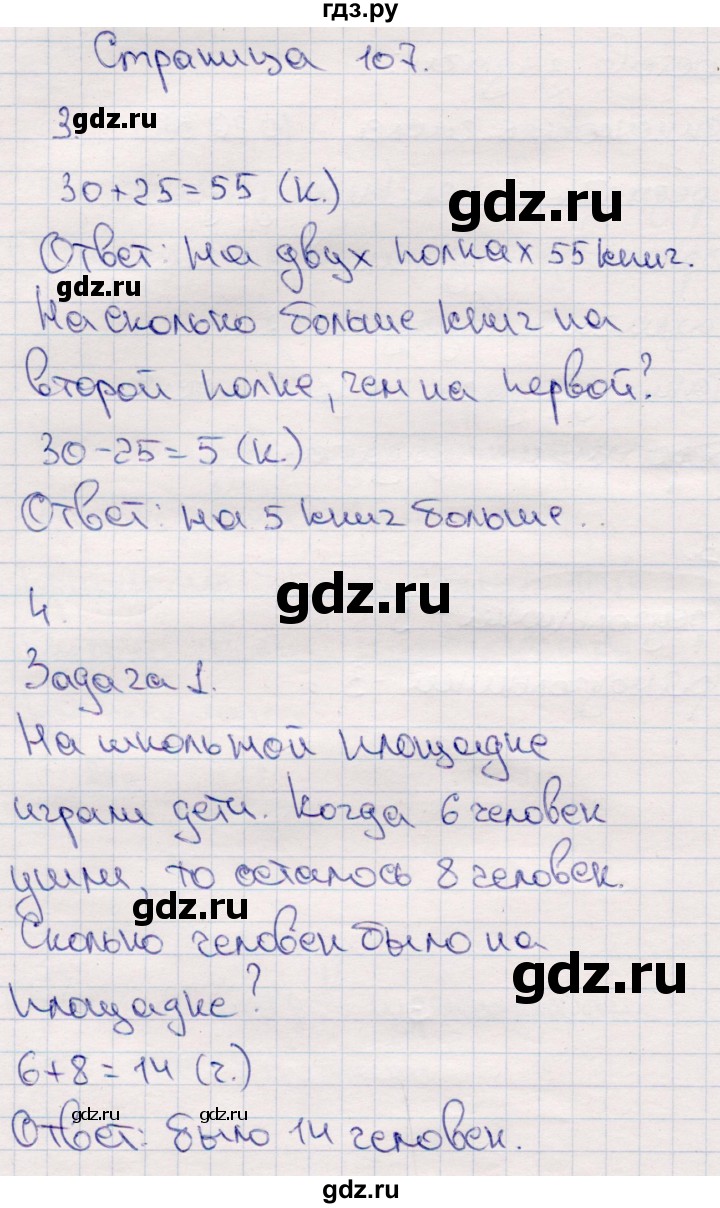 гдз.ру
Страница 107.
3.
gdz.ru
30+25=55 (к.)
gdz.ru
Ответ: на двух полках 55 книг.
gdz.ru
На сколько больше книг на
второй полке, чем на первой?
30-25=5 (к.)
Ответ: на 5 книг больше.
gdz.ru
4
Задача 1.
На школьной площадке
играли дети. Когда 6 человек
ушли, то осталось 8 человек.
gdz.ru
Сколько человек было на
gdz.ru
площадке?
6+8=14 (ч.)
gdz.ru gdz.ru
Ответ: было 14 человек.
gdz.ru